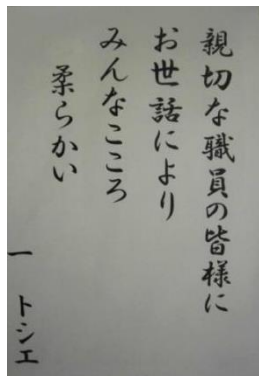 親切な職員の皆様に
お世話により
みんなこころ
柔らかい
一 トシエ